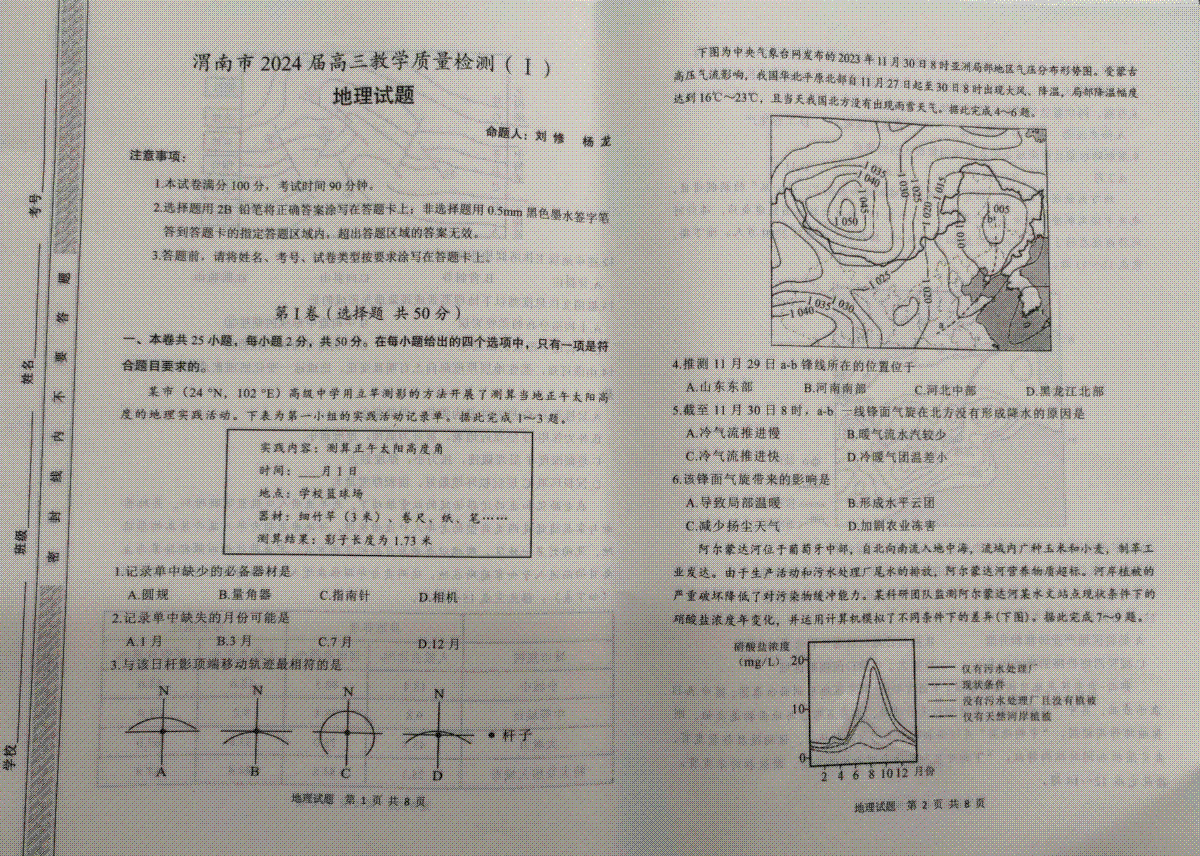 渭南市 2024 届高三教学质量检测（Ⅰ）
地理试题
命题人：刘 修 杨 龙
注意事项：
1.本试卷满分 100 分，考试时间 90 分钟。
2.选择题用 2B 铅笔将正确答案涂写在答题卡上；非选择题用 0.5mm 黑色墨水签字笔
答到答题卡的指定答题区域内，超出答题区域的答案无效。
3.答题前，请将姓名、考号、试卷类型按要求涂写在答题卡上。
第Ⅰ卷（选择题 共 50 分）
一、本卷共 25 小题，每小题 2 分，共 50 分。在每小题给出的四个选项中，只有一项是符
合题目要求的。
某市（24 °N，102 °E）高级中学用立竿测影的方法开展了测算当地正午太阳高
度的地理实践活动。下表为第一小组的实践活动记录单。据此完成 1～3 题。
实践内容：测算正午太阳高度角
时间：___月 1 日
地点：学校篮球场
器材：细竹竿（3 米）、卷尺、纸、笔……
测算结果：影子长度为 1.73 米
1.记录单中缺少的必备器材是
A.圆规 B.量角器 C.指南针 D.相机
2.记录单中缺失的月份可能是
A.1 月 B.3 月 C.7 月 D.12 月
3.与该日杆影顶端移动轨迹最相符的是
N N N N
● 杆子
A B C D
地理试题 第 1 页 共 8 页
考号
姓名
班级
学校
密 封 线 内 不 要 答 题
下图为中央气象台网发布的 2023 年 11 月 30 日 8 时亚洲局部地区气压分布形势图。受蒙古
高压气流影响，我国华北平原北部自 11 月 27 日起至 30 日 8 时出现大风、降温，局部降温幅度
达到 16℃～23℃，且当天我国北方没有出现雨雪天气。据此完成 4～6 题。
1 035
1 040
1 045
1 050
1 030
1 025
1 020
1 015
1 010
1 005
b
1 025
1 020
1 035
1 030
1 040
a
4.推测 11 月 29 日 a-b 锋线所在的位置位于
A.山东东部 B.河南南部 C.河北中部 D.黑龙江北部
5.截至 11 月 30 日 8 时，a-b 一线锋面气旋在北方没有形成降水的原因是
A.冷气流推进慢 B.暖气流水汽较少
C.冷气流推进快 D.冷暖气团温差小
6.该锋面气旋带来的影响是
A.导致局部温暖 B.形成水平云团
C.减少扬尘天气 D.加剧农业冻害
阿尔蒙达河位于葡萄牙中部，自北向南流入地中海，流域内广种玉米和小麦，制革工
业发达。由于生产活动和污水处理厂尾水的排放，阿尔蒙达河营养物质超标。河岸植被的
严重破坏降低了对污染物缓冲能力。某科研团队监测阿尔蒙达河某水文站点现状条件下的
硝酸盐浓度年变化，并运用计算机模拟了不同条件下的差异(下图)。据此完成 7～9 题。
硝酸盐浓度
（mg/L）
20
10
0
2 4 6 8 10 12 月份
仅有污水处理厂
现状条件
没有污水处理厂且没有植被
仅有天然河岸植被
地理试题 第 2 页 共 8 页